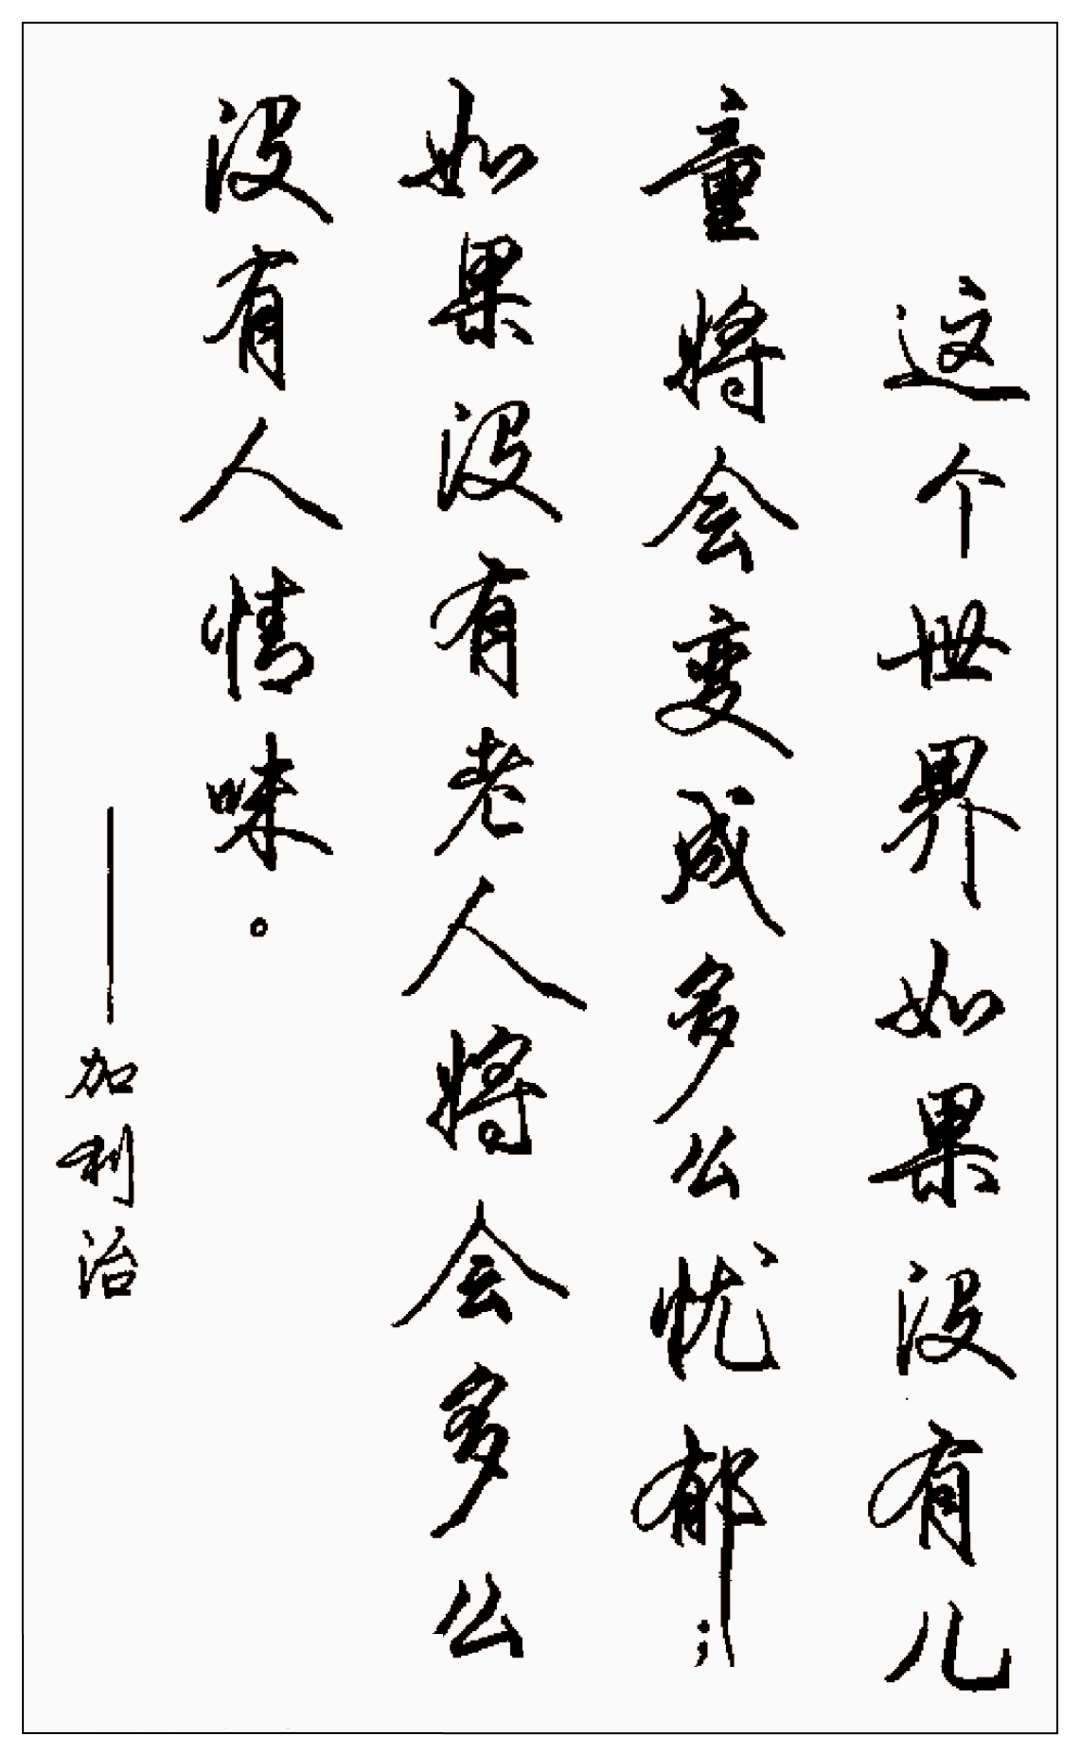 这个世界如果没有儿
童将会变成多么忧郁；
如果没有老人将会多么
没有人情味。
——加利治